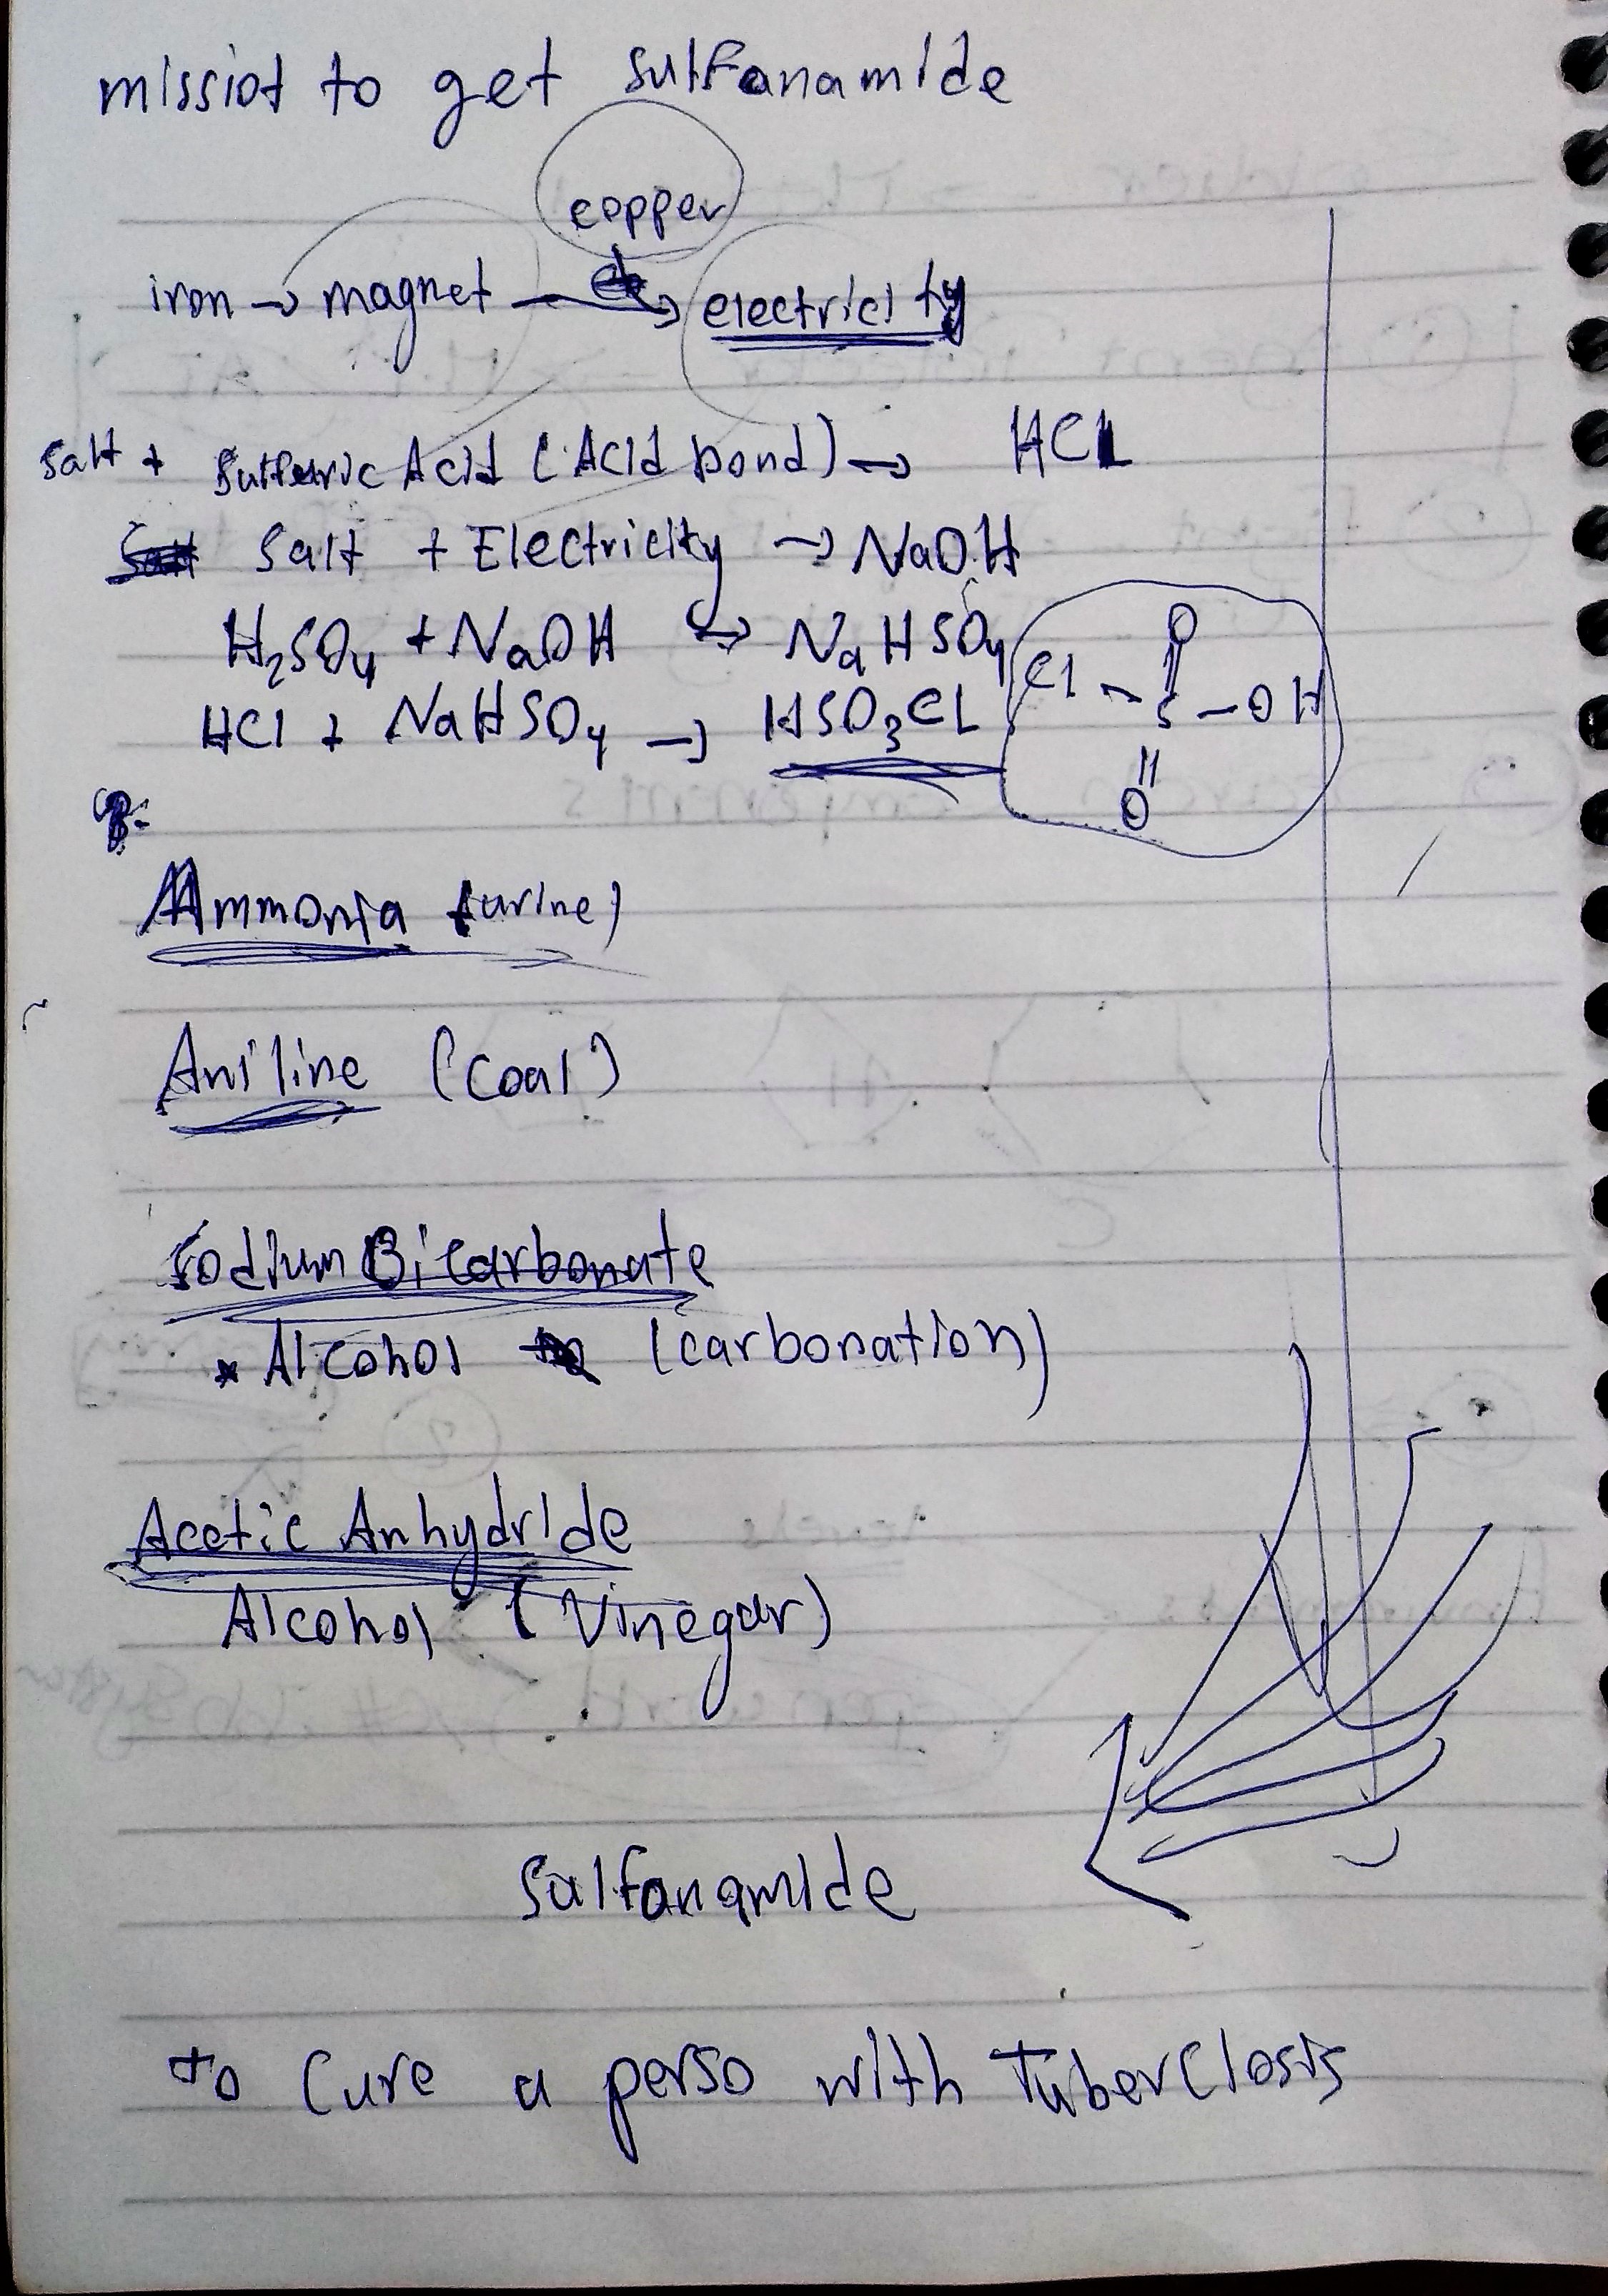 missiot to get sulfanamide
copper
iron → magnet → electricity
Salt + Sulferic Acid (Acid bond) → HCL
Salt + Electricity → NaOH
H₂SO₄ + NaOH → NaHSO₄
HCl + NaHSO₄ → HSO₃CL
O
Cl - S - OH
O
Ammonia (urine)
Aniline (coal)
Sodium Bicarbonate
* Alcohol (carbonation)
Acetic Anhydride
Alcohol (Vinegar)
Sulfonamide
to Cure a perso with Tuberclosis